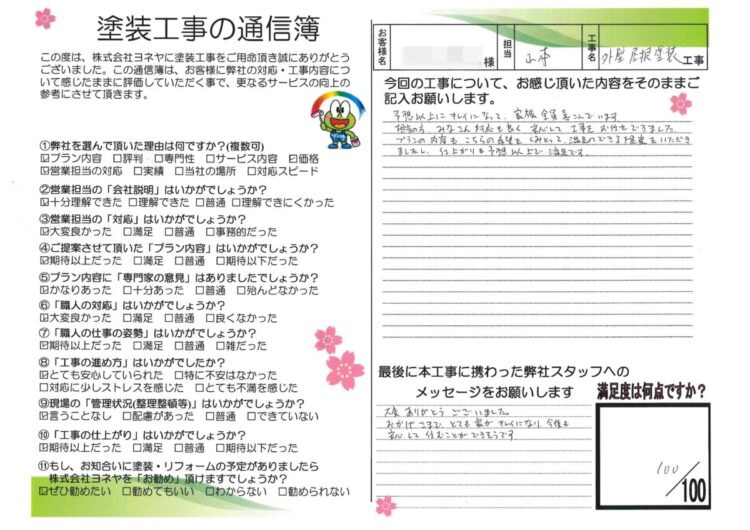 塗装工事の通信簿
この度は、株式会社ヨネヤに塗装工事をご用命頂き誠にありがとう
ございました。この通信簿は、お客様に弊社の対応・工事内容につ
いて感じたままに評価していただく事で、更なるサービスの向上の
参考にさせて頂きます。
①弊社を選んで頂いた理由は何ですか?(複数可)
☑プラン内容 □評判 □専門性 □サービス内容 ☑価格
☑営業担当の対応 □実績 □当社の場所 □対応スピード
②営業担当の「会社説明」はいかがでしょうか?
☑十分理解できた □理解できた □普通 □理解できにくかった
③営業担当の「対応」はいかがでしょうか?
☑大変良かった □満足 □普通 □事務的だった
④ご提案させて頂いた「プラン内容」はいかがでしょうか?
☑期待以上だった □満足 □普通 □期待以下だった
⑤プラン内容に「専門家の意見」はありましたでしょうか?
☑かなりあった □十分あった □普通 □殆んどなかった
⑥「職人の対応」はいかがでしょうか?
☑大変良かった □満足 □普通 □良くなかった
⑦「職人の仕事の姿勢」はいかがでしょうか?
☑期待以上だった □満足 □普通 □雑だった
⑧「工事の進め方」はいかがでしたか?
☑とても安心していられた □特に不安はなかった
□対応に少しストレスを感じた □とても不満を感じた
⑨現場の「管理状況(整理整頓等)」はいかがでしょうか?
☑言うことなし □配慮があった □普通 □できていない
⑩「工事の仕上がり」はいかがでしょうか?
☑期待以上だった □満足 □普通 □期待以下だった
⑪もし、お知合いに塗装・リフォームの予定がありましたら
株式会社ヨネヤを「お勧め」頂けますでしょうか?
☑ぜひ勧めたい □勧めてもいい □わからない □勧められない
お客様名 様 担当 山本 工事名 外壁屋根塗装 工事
今回の工事について、お感じ頂いた内容をそのままご
記入お願いします。
予想以上にキレイになって、家族全員喜んでいます。
担当の方、みなさん対応も良く安心して工事をお任せできました。
プランの内容も こちらの希望を くみとって、満足のできる提案をいただき
ましたし、仕上がりも予想以上で満足です。
最後に本工事に携わった弊社スタッフへの
メッセージをお願いします
大変ありがとうございました。
おかげさまで、とても家がキレイになり、今後も
安心して住むことができそうです
満足度は何点ですか?
100
/100